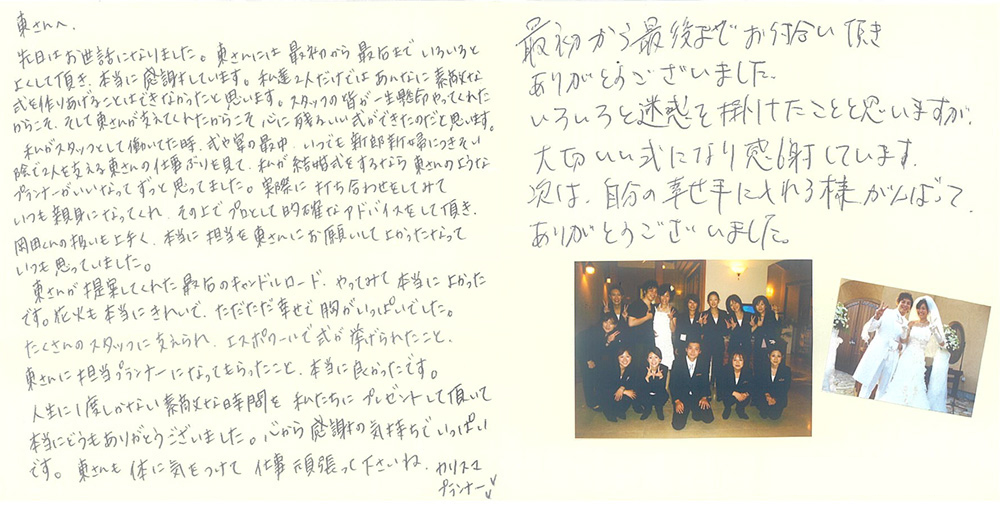 東さんへ.
先日はお世話になりました。東さんには最初から最后までいろいろと
よくして頂き、本当に感謝しています。私達2人だけではあんなに素敵な
式を作りあげることはできなかったと思います。スタッフの皆が一生懸命やってくれた
からこそ、そして東さんが支えてくれたからこそ心に残るいい式ができたのだと思います。
私がスタッフとして働いてた時、式や宴の最中、いつでも新郎新婦につきそい
陰で2人を支える東さんの仕事ぶりを見て、私が結婚式をするなら東さんのような
プランナーがいいなってずっと思ってました。実際に打ち合わせをしてみて
いつも親身になってくれ、その上でプロとして的確なアドバイスをして頂き、
岡田くんの扱いも上手く、本当に担当を東さんにお願いして良かったなって
いつも思っていました。
東さんが提案してくれた最后のキャンドルロード、やってみて本当によかった
です。花火も本当にきれいで、ただただ幸せで胸がいっぱいでした。
たくさんのスタッフに支えられ、エスポワールで式が挙げられたこと、
東さんに担当プランナーになってもらったこと、本当に良かったです。
人生に1度しかない素敵な時間を私たちにプレゼントして頂いて
本当にどうもありがとうございました。心から感謝の気持ちでいっぱい
です。東さんも体に気をつけて仕事頑張って下さいね、カリスマ
プランナー
最初から最後までお付合い頂き
ありがとうございました.
いろいろと迷惑を掛けたことと思いますが、
大切いい式になり感謝しています.
次は、自分の幸せ手に入れる様がんばって、
ありがとうございました。